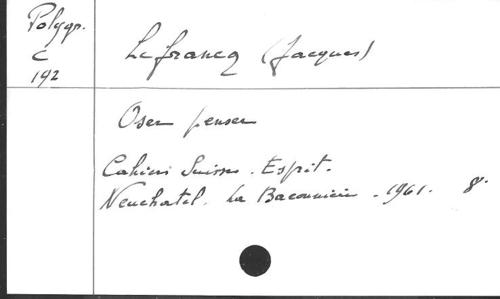 Polygr.
C
192
Lefrancq (Jacques)
Oser penser
Cahiers Suisses. Esprit.
Neuchatel. La Baconnière. 1961. 8°.